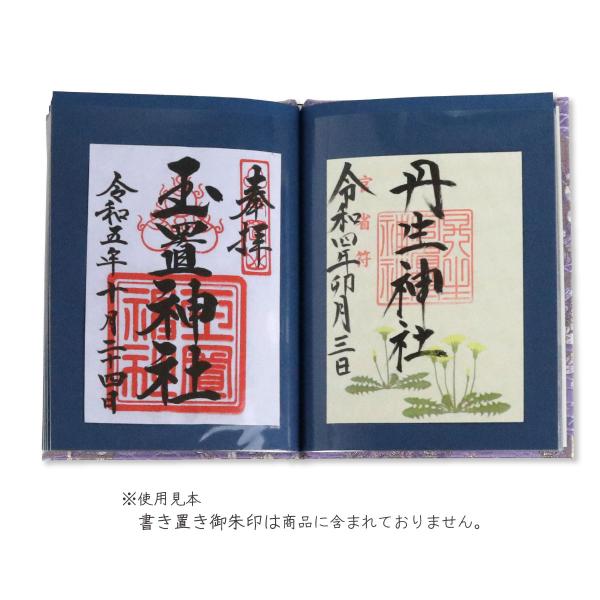 奉拝
玉置神社
令和五年十月二十四日
丹生神社
官省符
令和四年卯月三日
※使用見本
書き置き御朱印は商品に含まれておりません。